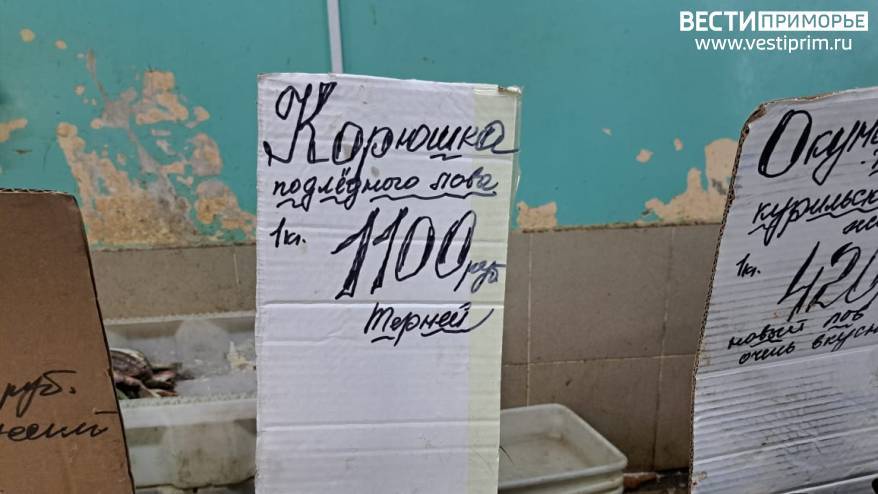 ВЕСТИ ПРИМОРЬЕ
www.vestiprim.ru
Корюшка
подлёдного лова
1кг. 1100 руб
Терней
курильск
1кг. 420
новый лов
очень вкусн
руб.